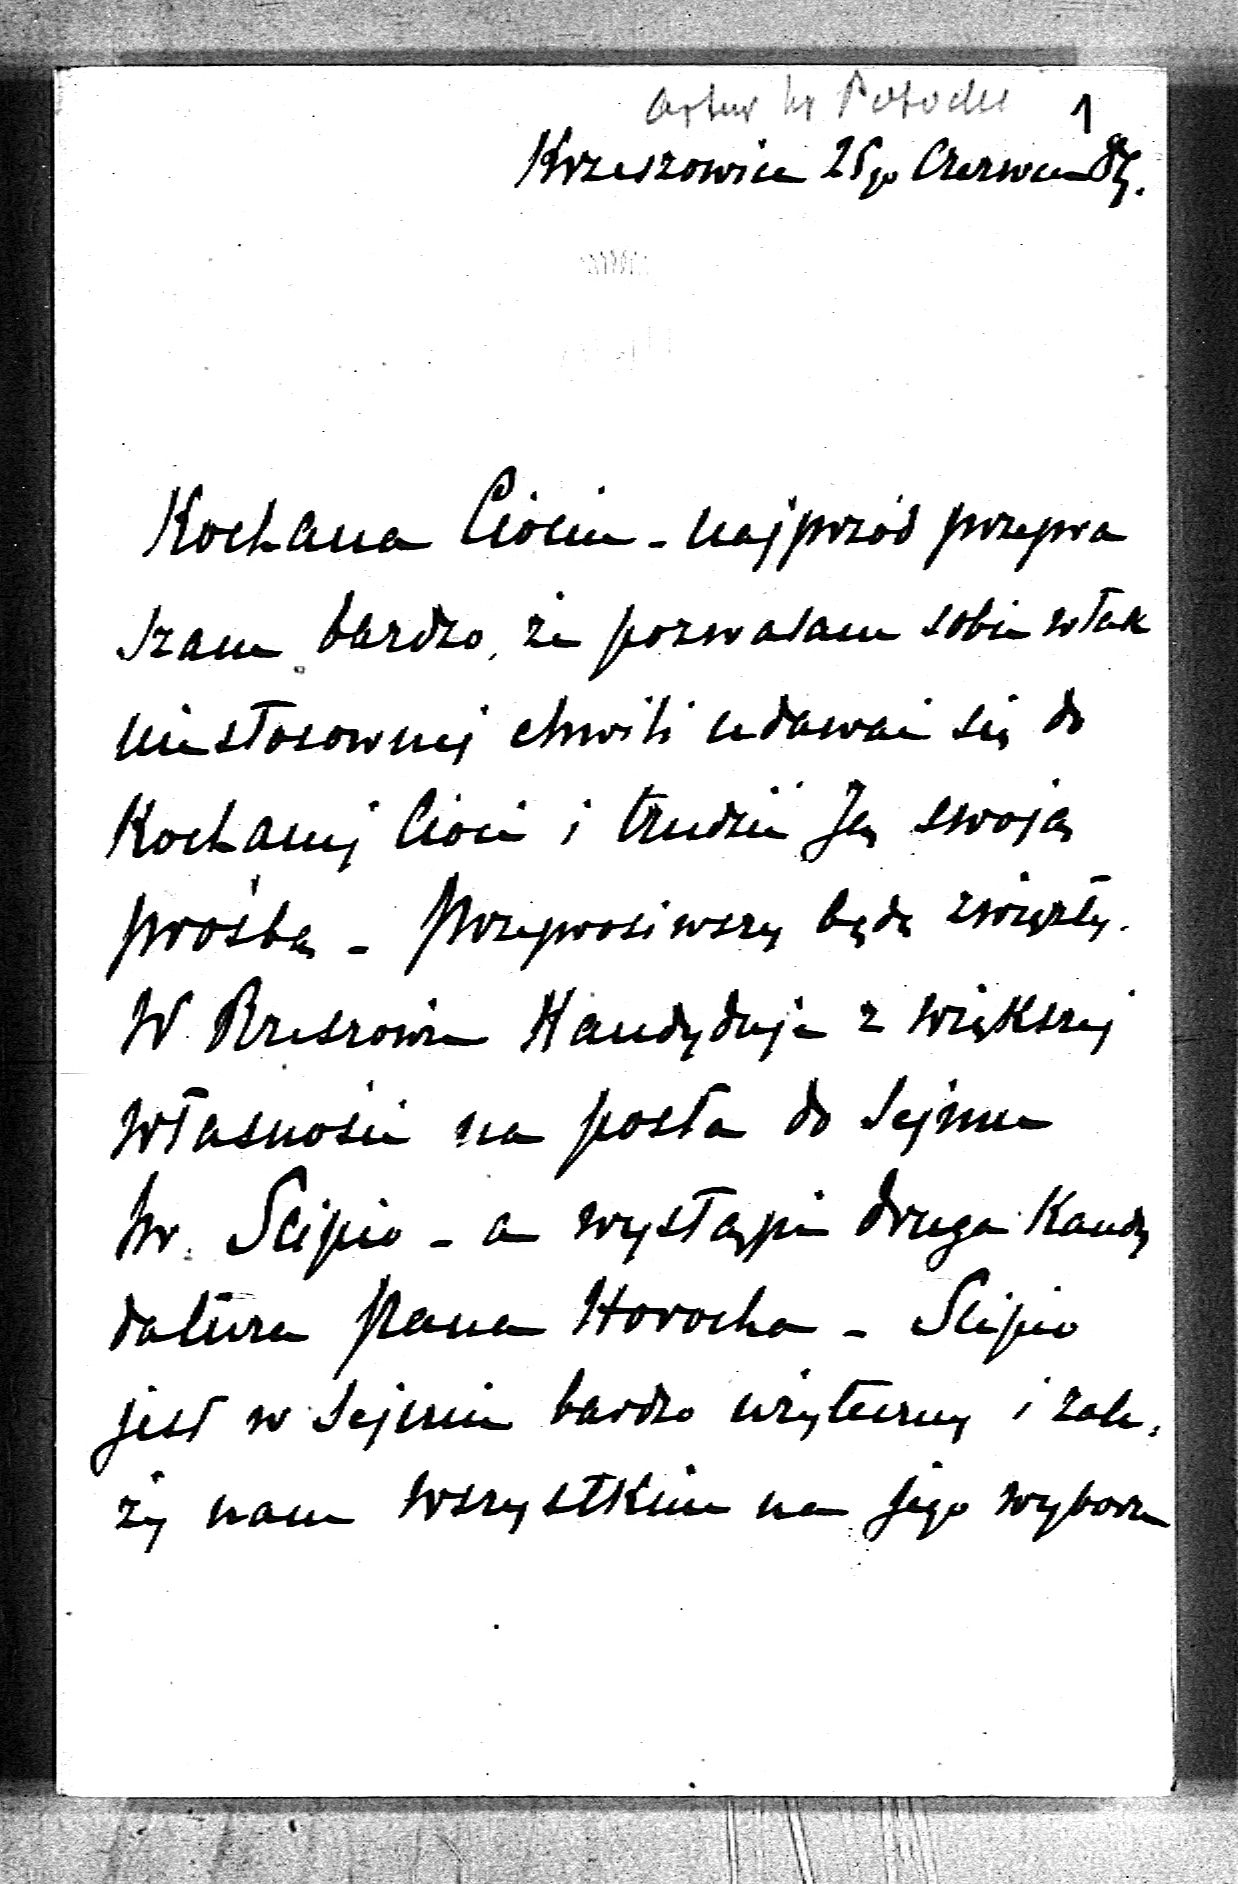 Artur hr Potocki 1
Krzeszowice 25go Czerwca 89.
Kochana Ciociu - najprzód przepra
szam bardzo, że pozwalam sobie w tak
niestosownej chwili udawać się do
Kochanej Cioci i trudzić Ją swoją
prośbą - Przeprosiwszy będę zwięzły.
W Rzeszowie Kandyduje z większej
własności na posła do Sejmu
hr. Scipio - a wystąpi druga Kandy
datura Pana Horocha - Scipio
jest w Sejmie bardzo użyteczny i zale,
ży nam wszystkim na jego wyborze